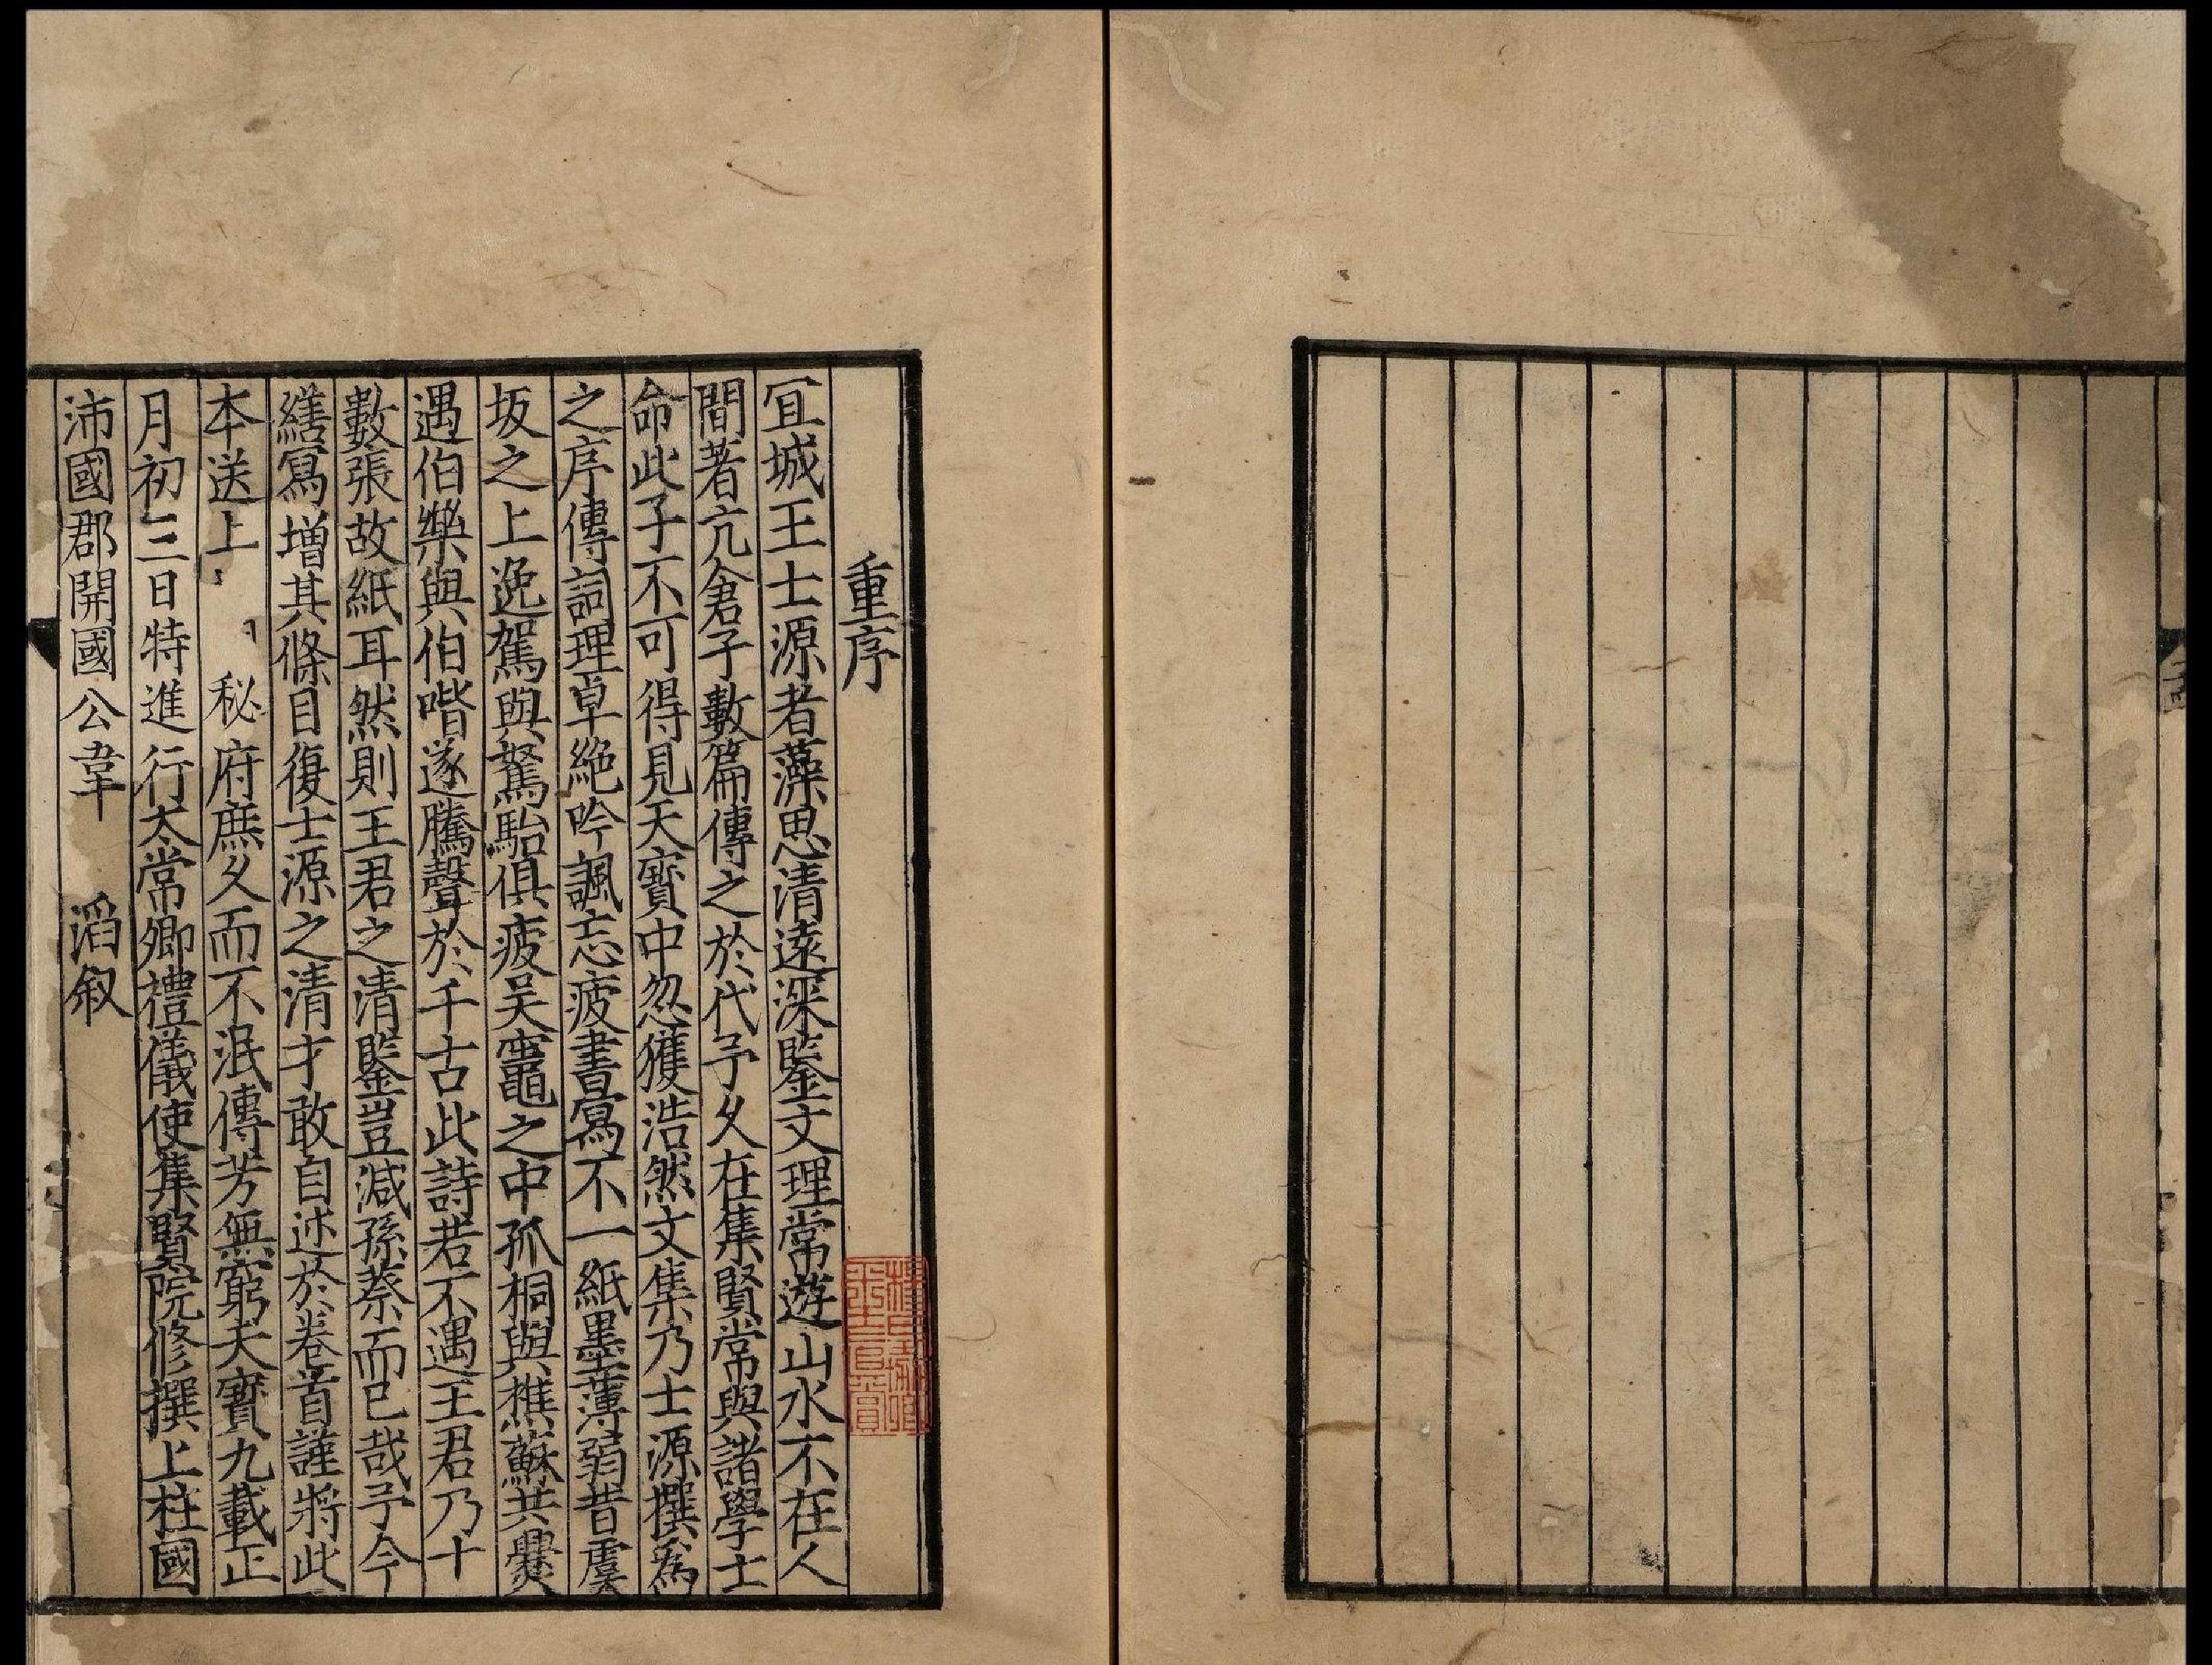 重序
冝城王士源者藻思清逺深鑒文理常遊山水不在人
間著亢倉子數篇傳之於代予乆在集賢常與諸學士
命此子不可得見天寳中忽獲浩然文集乃士源撰為
之序傳詞理卓絶吟諷忘疲書寫不一紙墨薄弱昔虞
坂之上逸駕與駑駘俱疲吴竈之中孤桐與樵蘇共爨
遇伯樂與伯喈遂騰聲於千古此詩若不遇王君乃十
數張故紙耳然則王君之清鑒豈減孫蔡而已哉予今
繕寫增其條目復士源之清才敢自述於卷首謹將此
本送上 秘府庶乆而不泯傳芳無窮天寳九載正
月初三日特進行太常卿禮儀使集賢院修撰上柱國
沛國郡開國公韋 滔叙